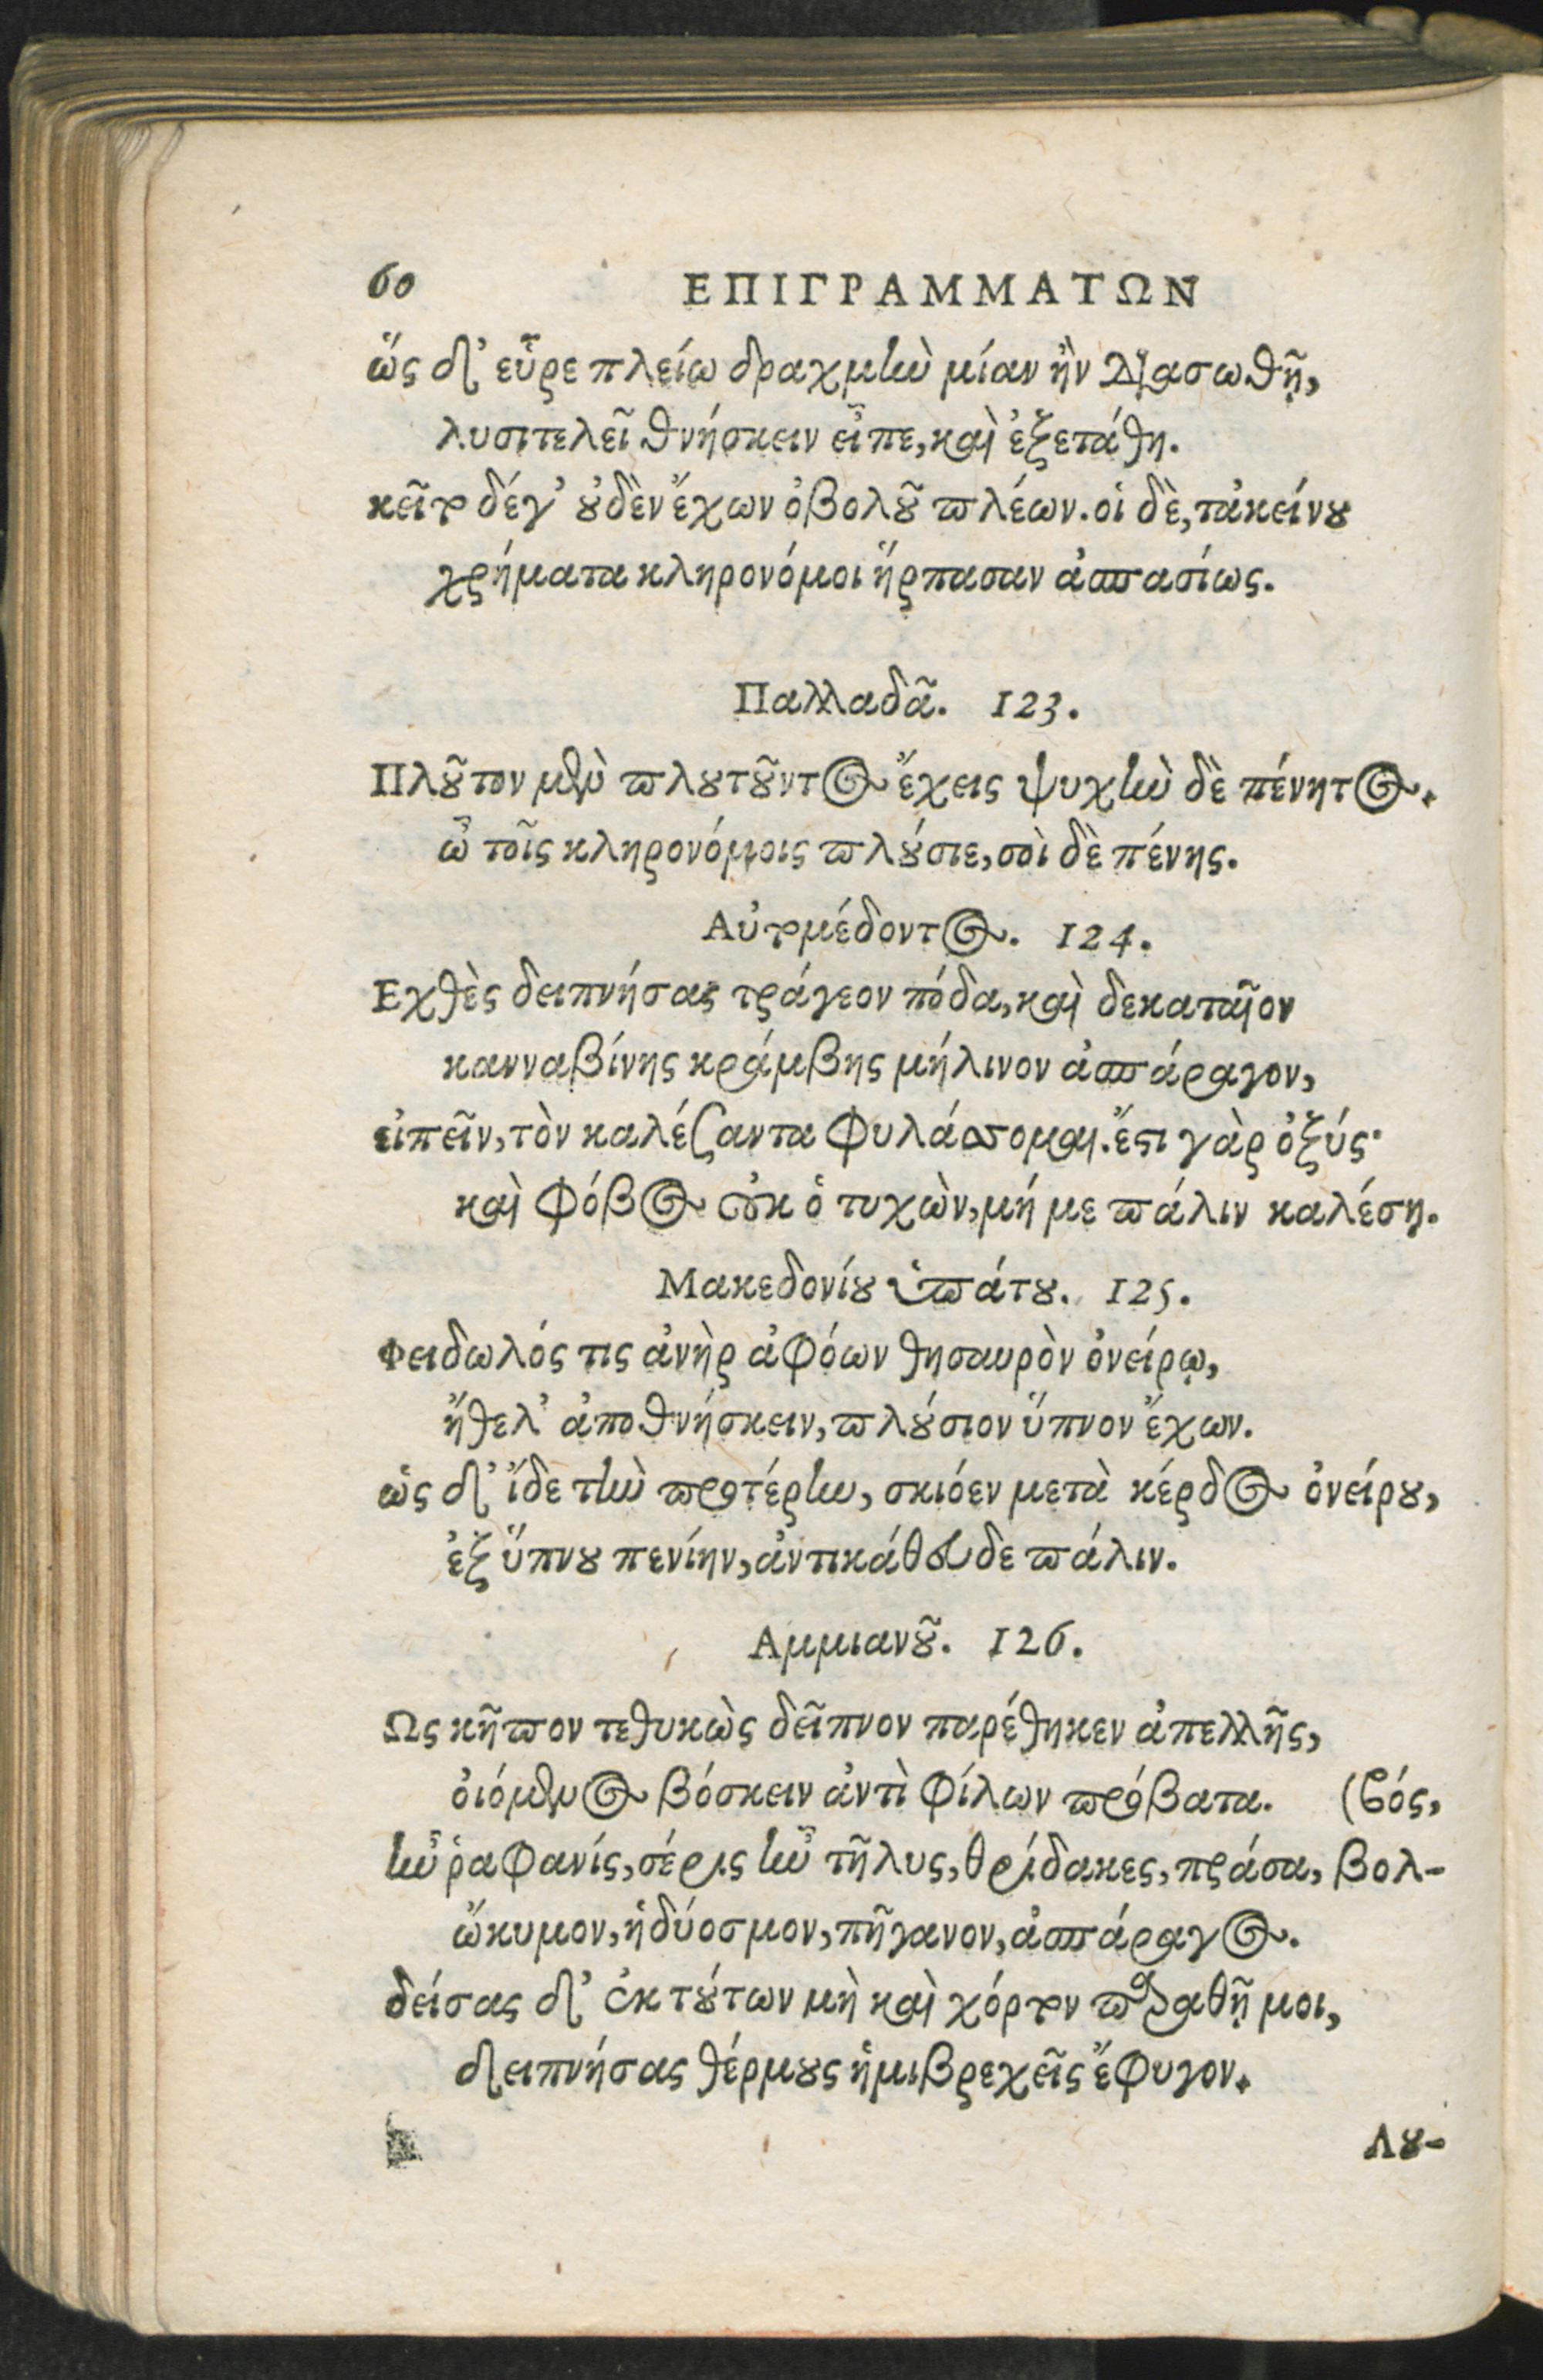 60 ΕΠΙΓΡΑΜΜΑΤΩΝ
ὥς δ' εὗρε πλείω δραχμὴν μίαν ἢν διασωθῇ,
λυσιτελεῖ θνήσκειν εἶπε, καὶ ἐξετάθη.
κεῖτο δέγ' οὐδὲν ἔχων ὀβολοῦ πλέων. οἱ δὲ, τἀκείνου
χρήματα κληρονόμοι ἥρπασαν ἀσπασίως.
Παλλαδᾶ. 123.
Πλοῦτον μὲν πλουτοῦντος ἔχεις ψυχὴν δὲ πένητος.
ὦ τοῖς κληρονόμοις πλούσιε, σοὶ δὲ πένης.
Αὐτομέδοντος. 124.
Εχθὲς δειπνήσας τράγεον πόδα, καὶ δεκαταῖον
κανναβίνης κράμβης μήλινον ἀσπάραγον,
εἰπεῖν, τὸν καλέσαντα φυλάσσομαι. ἔστι γὰρ ὀξύς·
καὶ φόβος οὐκ ὁ τυχὼν, μή με πάλιν καλέσῃ.
Μακεδονίου ὑπάτου. 125.
Φειδωλός τις ἀνὴρ ἀφόων θησαυρὸν ὀνείρῳ,
ἤθελ' ἀποθνήσκειν, πλούσιον ὕπνον ἔχων.
ὡς δ' ἴδε τὴν προτέρην, σκιόεν μετὰ κέρδος ὀνείρου,
ἐξ ὕπνου πενίην, ἀντικάθευδε πάλιν.
Αμμιανοῦ. 126.
Ως κῆπον τεθυκὼς δεῖπνον παρέθηκεν ἀπελλῆς,
οἰόμενος βόσκειν ἀντὶ φίλων πρόβατα. (βός,
ἦν ῥαφανίς, σέρις ἦν τῆλυς, θρίδακες, πράσα, βολ-
ὤκυμον, ἡδύοσμον, πῆγανον, ἀσπάραγος.
δείσας δ' ἐκ τούτων μὴ καὶ χόρτον παραθῇ μοι,
δειπνήσας θέρμους ἡμιβρεχεῖς ἔφυγον.
Λου-